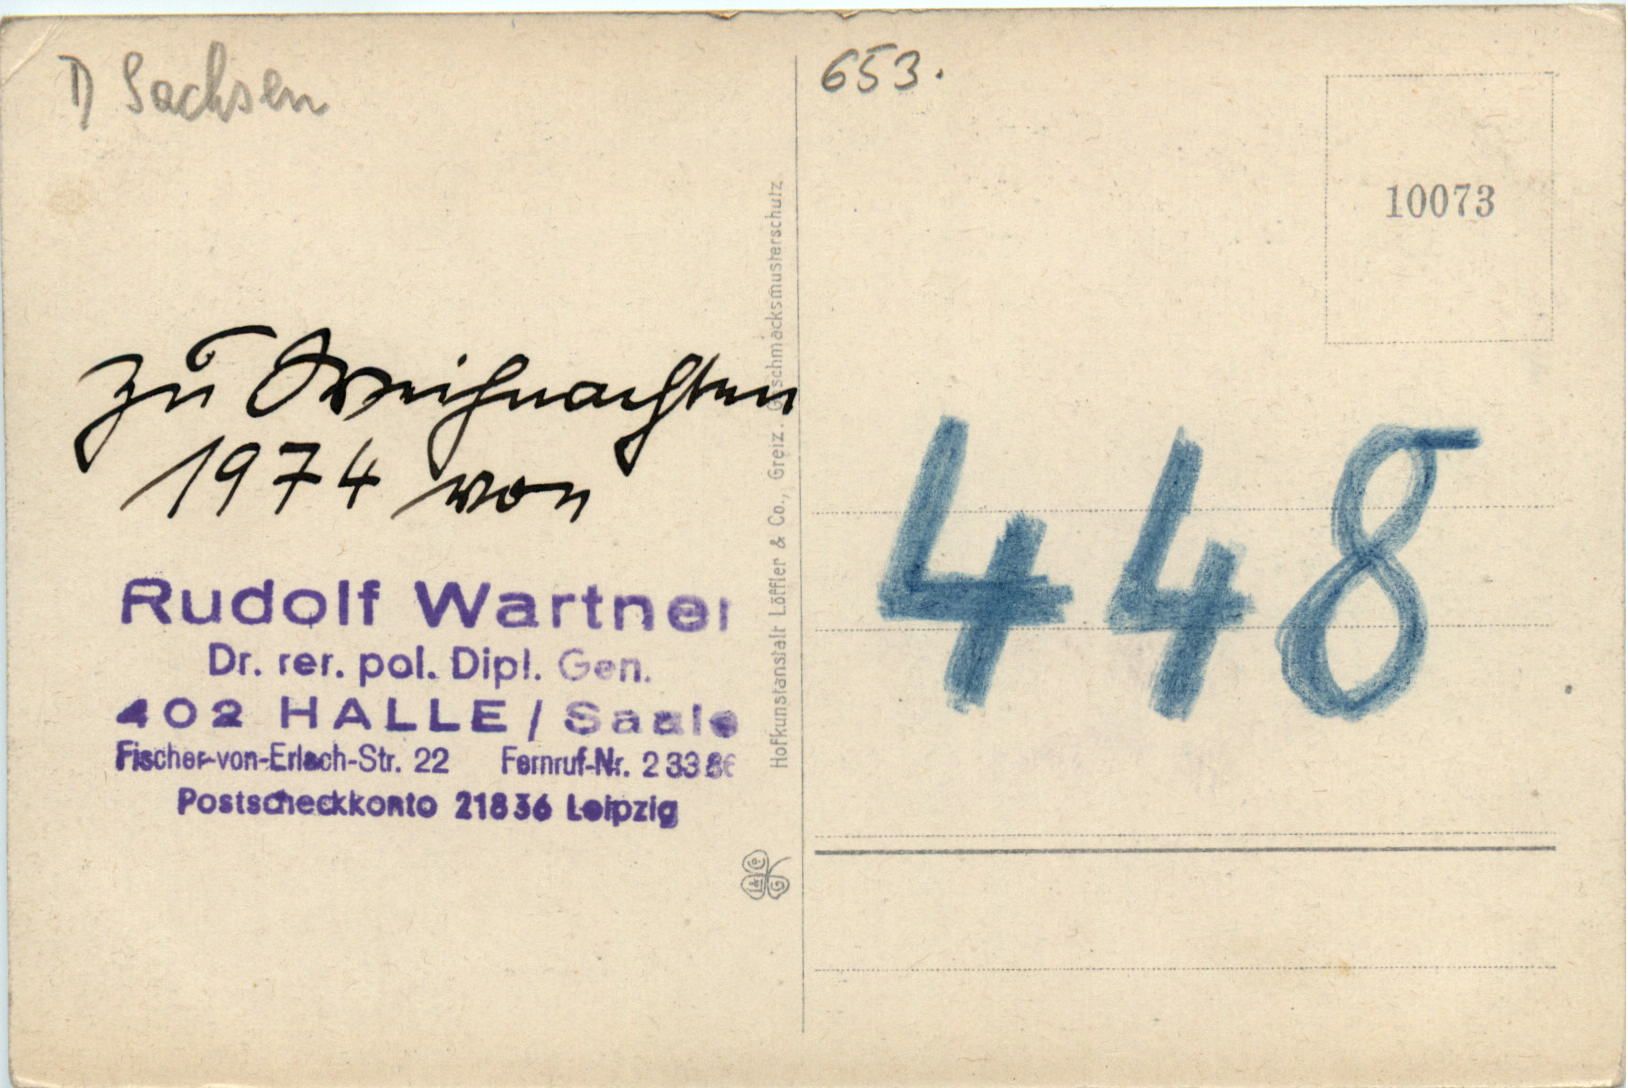 D Sachsen
653.
10073
zu Weihnachten
1974 von
Rudolf Wartner
Dr. rer. pol. Dipl. Gen.
402 HALLE / Saale
Fischer-von-Erlach-Str. 22 Fernruf-Nr. 2 33 86
Postscheckkonto 21836 Leipzig
Hofkunstanstalt Löffler & Co., Greiz. Geschmacksmusterschutz
L & Co G
448